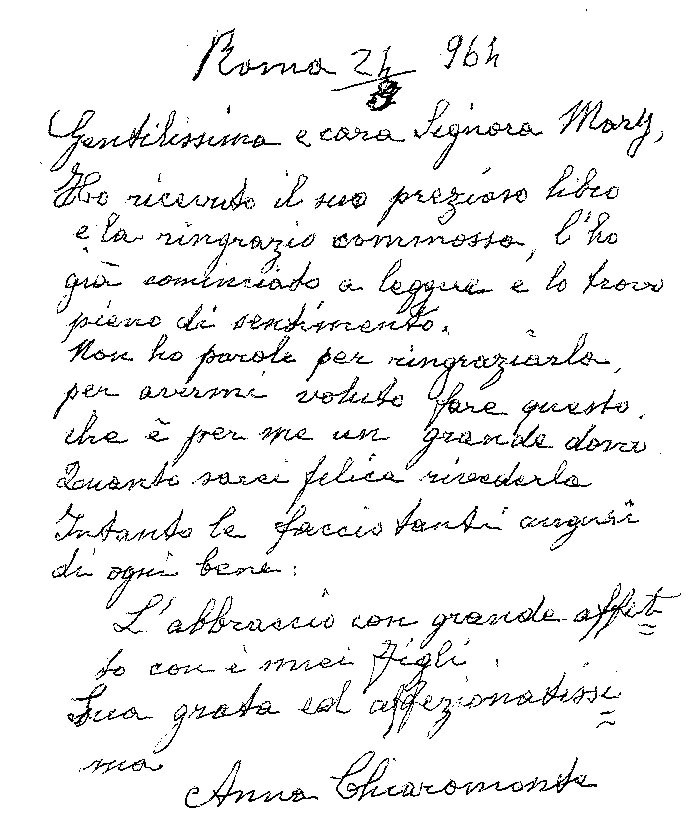 Roma 24 964
Gentilissima e cara Signora Mary,
Ho ricevuto il suo prezioso libro
e la ringrazio commossa, l'ho
già cominciato a leggere e lo trovo
pieno di sentimento.
Non ho parole per ringraziarla,
per avermi voluto fare questo,
che è per me un grande dono
Quanto sarei felice rivederla
Intanto le faccio tanti auguri
di ogni bene:
L'abbraccio con grande affet=
to con i miei figli.
Sua grata ed affezionatissi=
ma
Anna Chiaromonte